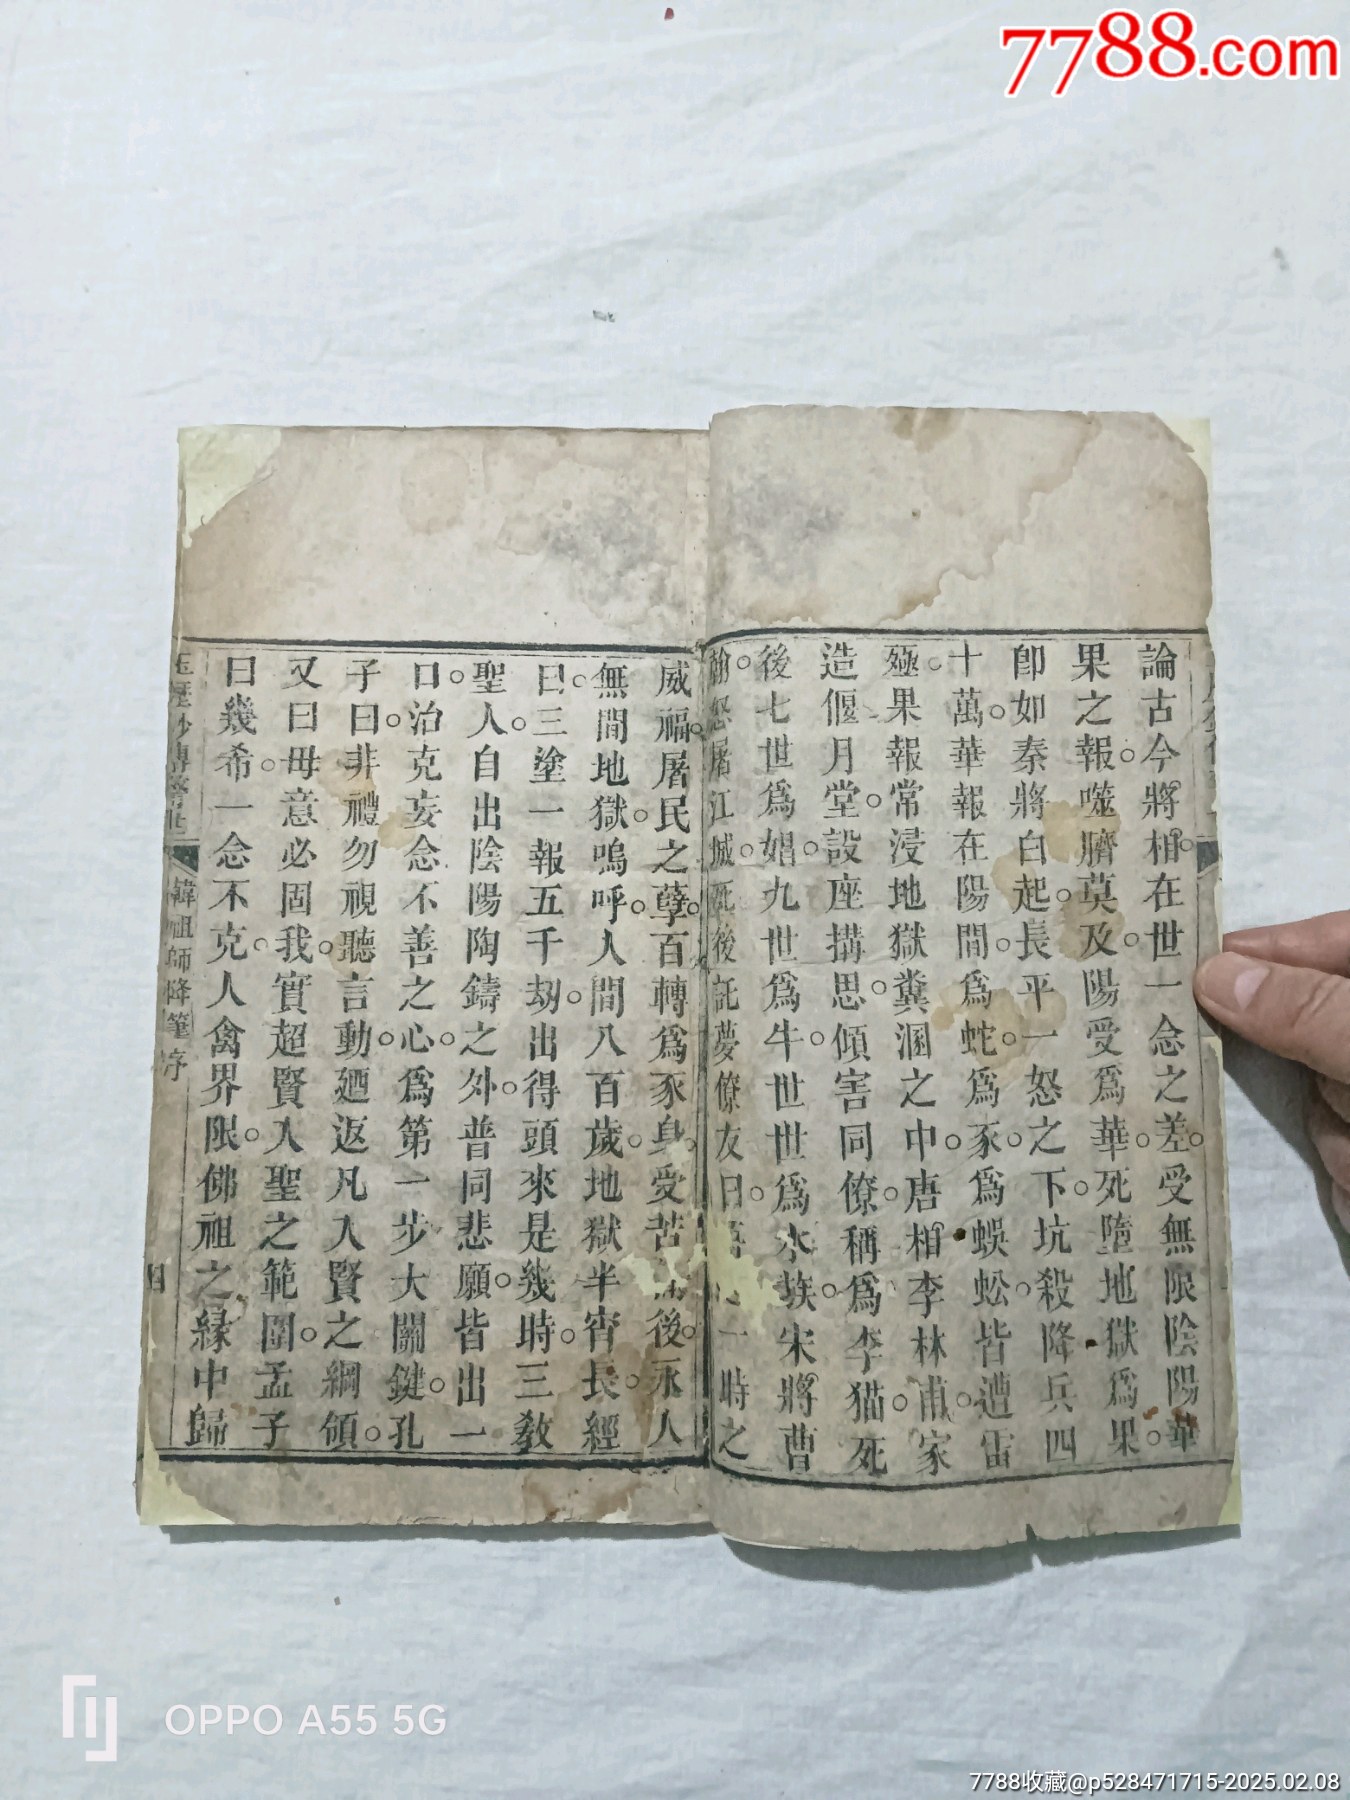 7788.com
論古今將相在世一念之差受無限陰陽華
果之報噬臍莫及陽受爲華死墮地獄爲果
卽如秦將白起長平一怒之下坑殺降兵四
十萬華報在陽間爲蛇爲豕爲蜈蚣皆遭雷
殛果報常浸地獄糞溷之中唐相李林甫家
造偃月堂設座搆思傾害同僚稱爲李猫死
後七世爲娼九世爲牛世世爲水族宋將曹
翰怒屠江城死後託夢僚友曰 一時之
威福屠民之孽百轉爲豕身受苦 後永人
無間地獄嗚呼人間八百歲地獄半宵長經
曰三塗一報五千劫出得頭來是幾時三教
聖人自出陰陽陶鑄之外普同悲願皆出一
口治克妄念不善之心爲第一步大關鍵孔
子曰非禮勿視聽言動廼返凡入賢之綱領
又曰毋意必固我實超賢入聖之範圍孟子
曰幾希一念不克人禽界限佛祖之緣中歸
玉歷鈔傳警世 韓祖師降筆序 四
OPPO A55 5G
7788收藏@p528471715-2025.02.08